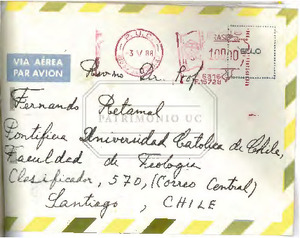 VIA AÉREA
PAR AVION
P.U.C.
-3 V 88
BRASIL
SELO
Revmo Dr. Prof.
Fernando Retamal
PATRIMONIO UC
Pontifica Universidad Catolica de Chile,
Faculdad de Teologia
Clasificador, 570, (Correo Central)
Santiago, CHILE